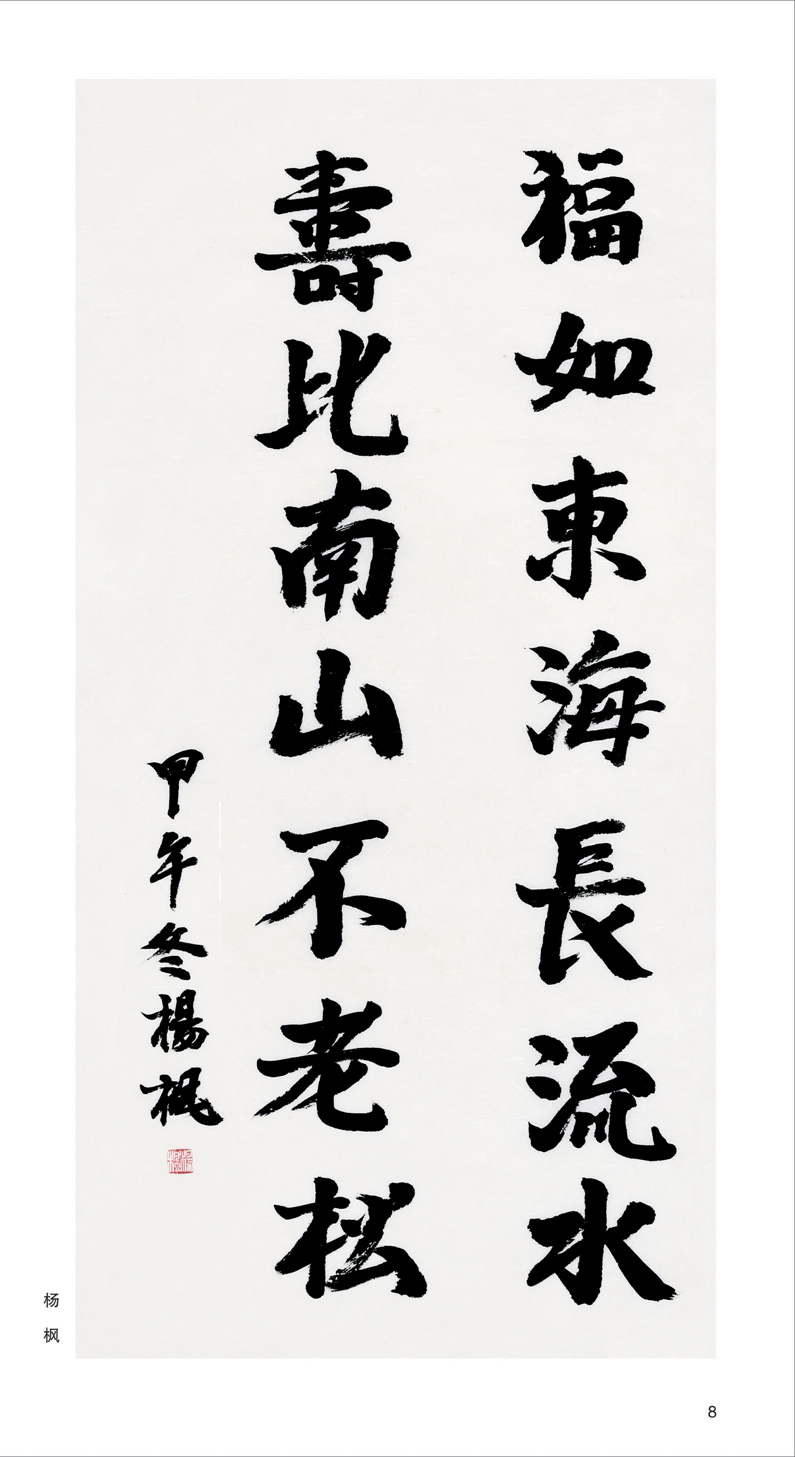 福如東海長流水
壽比南山不老松
甲午冬楊楓
杨枫
8